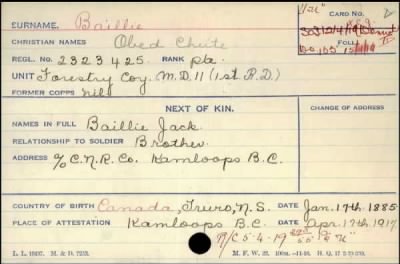 "U"
CARD No.
SURNAME. Baillie
CHRISTIAN NAMES Obed Chute
FOLL.
REGL. No. 2323425. RANK Pte.
UNIT Forestry Coy. M.D. 11 (1st R.D.)
FORMER CORPS Nil
NEXT OF KIN.
CHANGE OF ADDRESS
NAMES IN FULL Baillie Jack.
RELATIONSHIP TO SOLDIER Brother.
ADDRESS c/o C.N.R. Co. Kamloops B.C.
COUNTRY OF BIRTH Canada, Truro, N.S. DATE Jan. 17th 1885
PLACE OF ATTESTATION Kamloops B.C. DATE Apr. 17th 1917
R/C 5-4-19
M. F. W. 22.